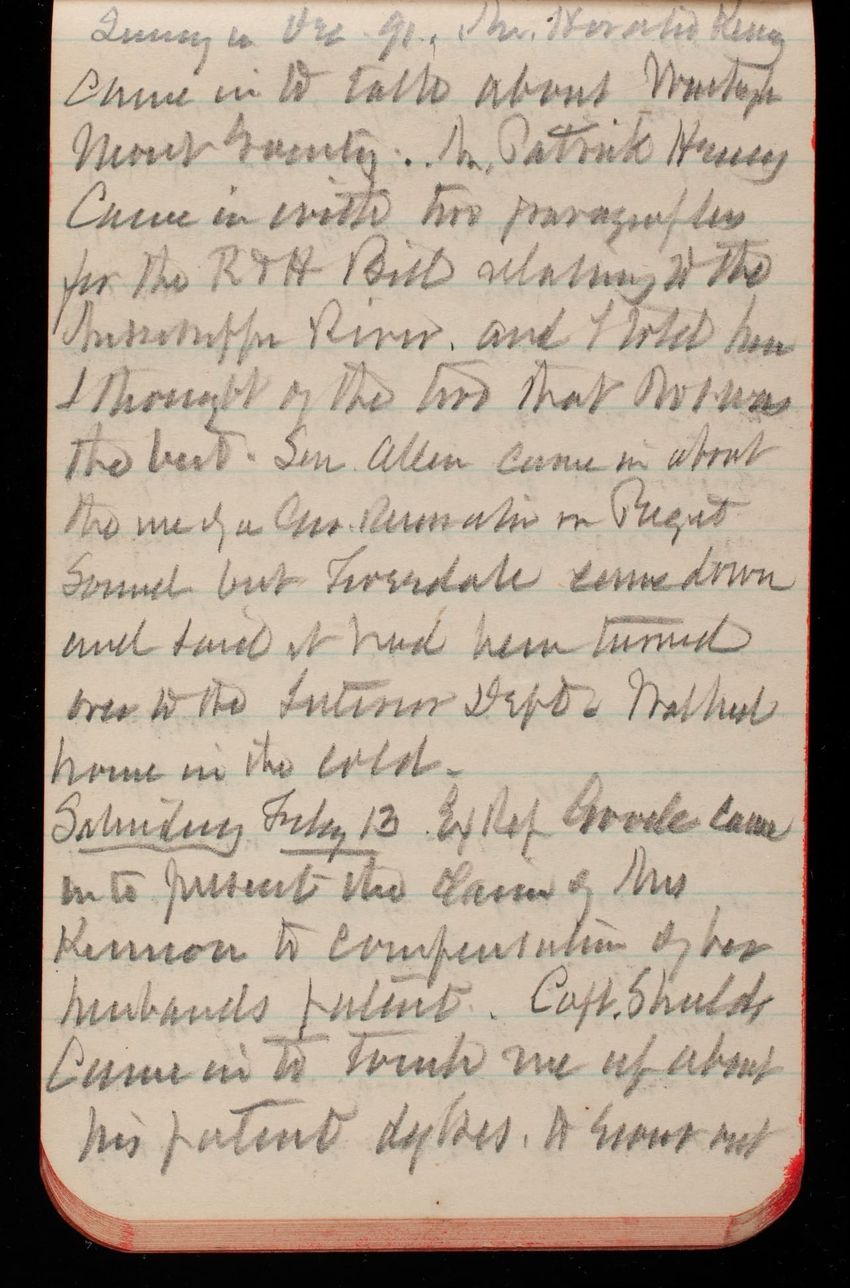 in Dec 91. Mr. Horatio King
came in to talk about Washgtn
Mont Society. Mr. Patrick Henry
Came in with two paragraphs
for the R & H Bill relating to the
Mississippi River. and I told him
I thought of the two that No 1 was
the best. Sen Allen came in about
the use of a Gov. Reservation on Puget
Sound but Tweedale came down
and said it had been turned
over to the Interior Dept. Walked
home in the cold.
Saturday Feby 13 Ex Rep Goode came
in to present the claim of Mrs
Kennon to compensation of her
husbands patent. Capt. Shields
Came in to touch me up about
his patent dykes. A out